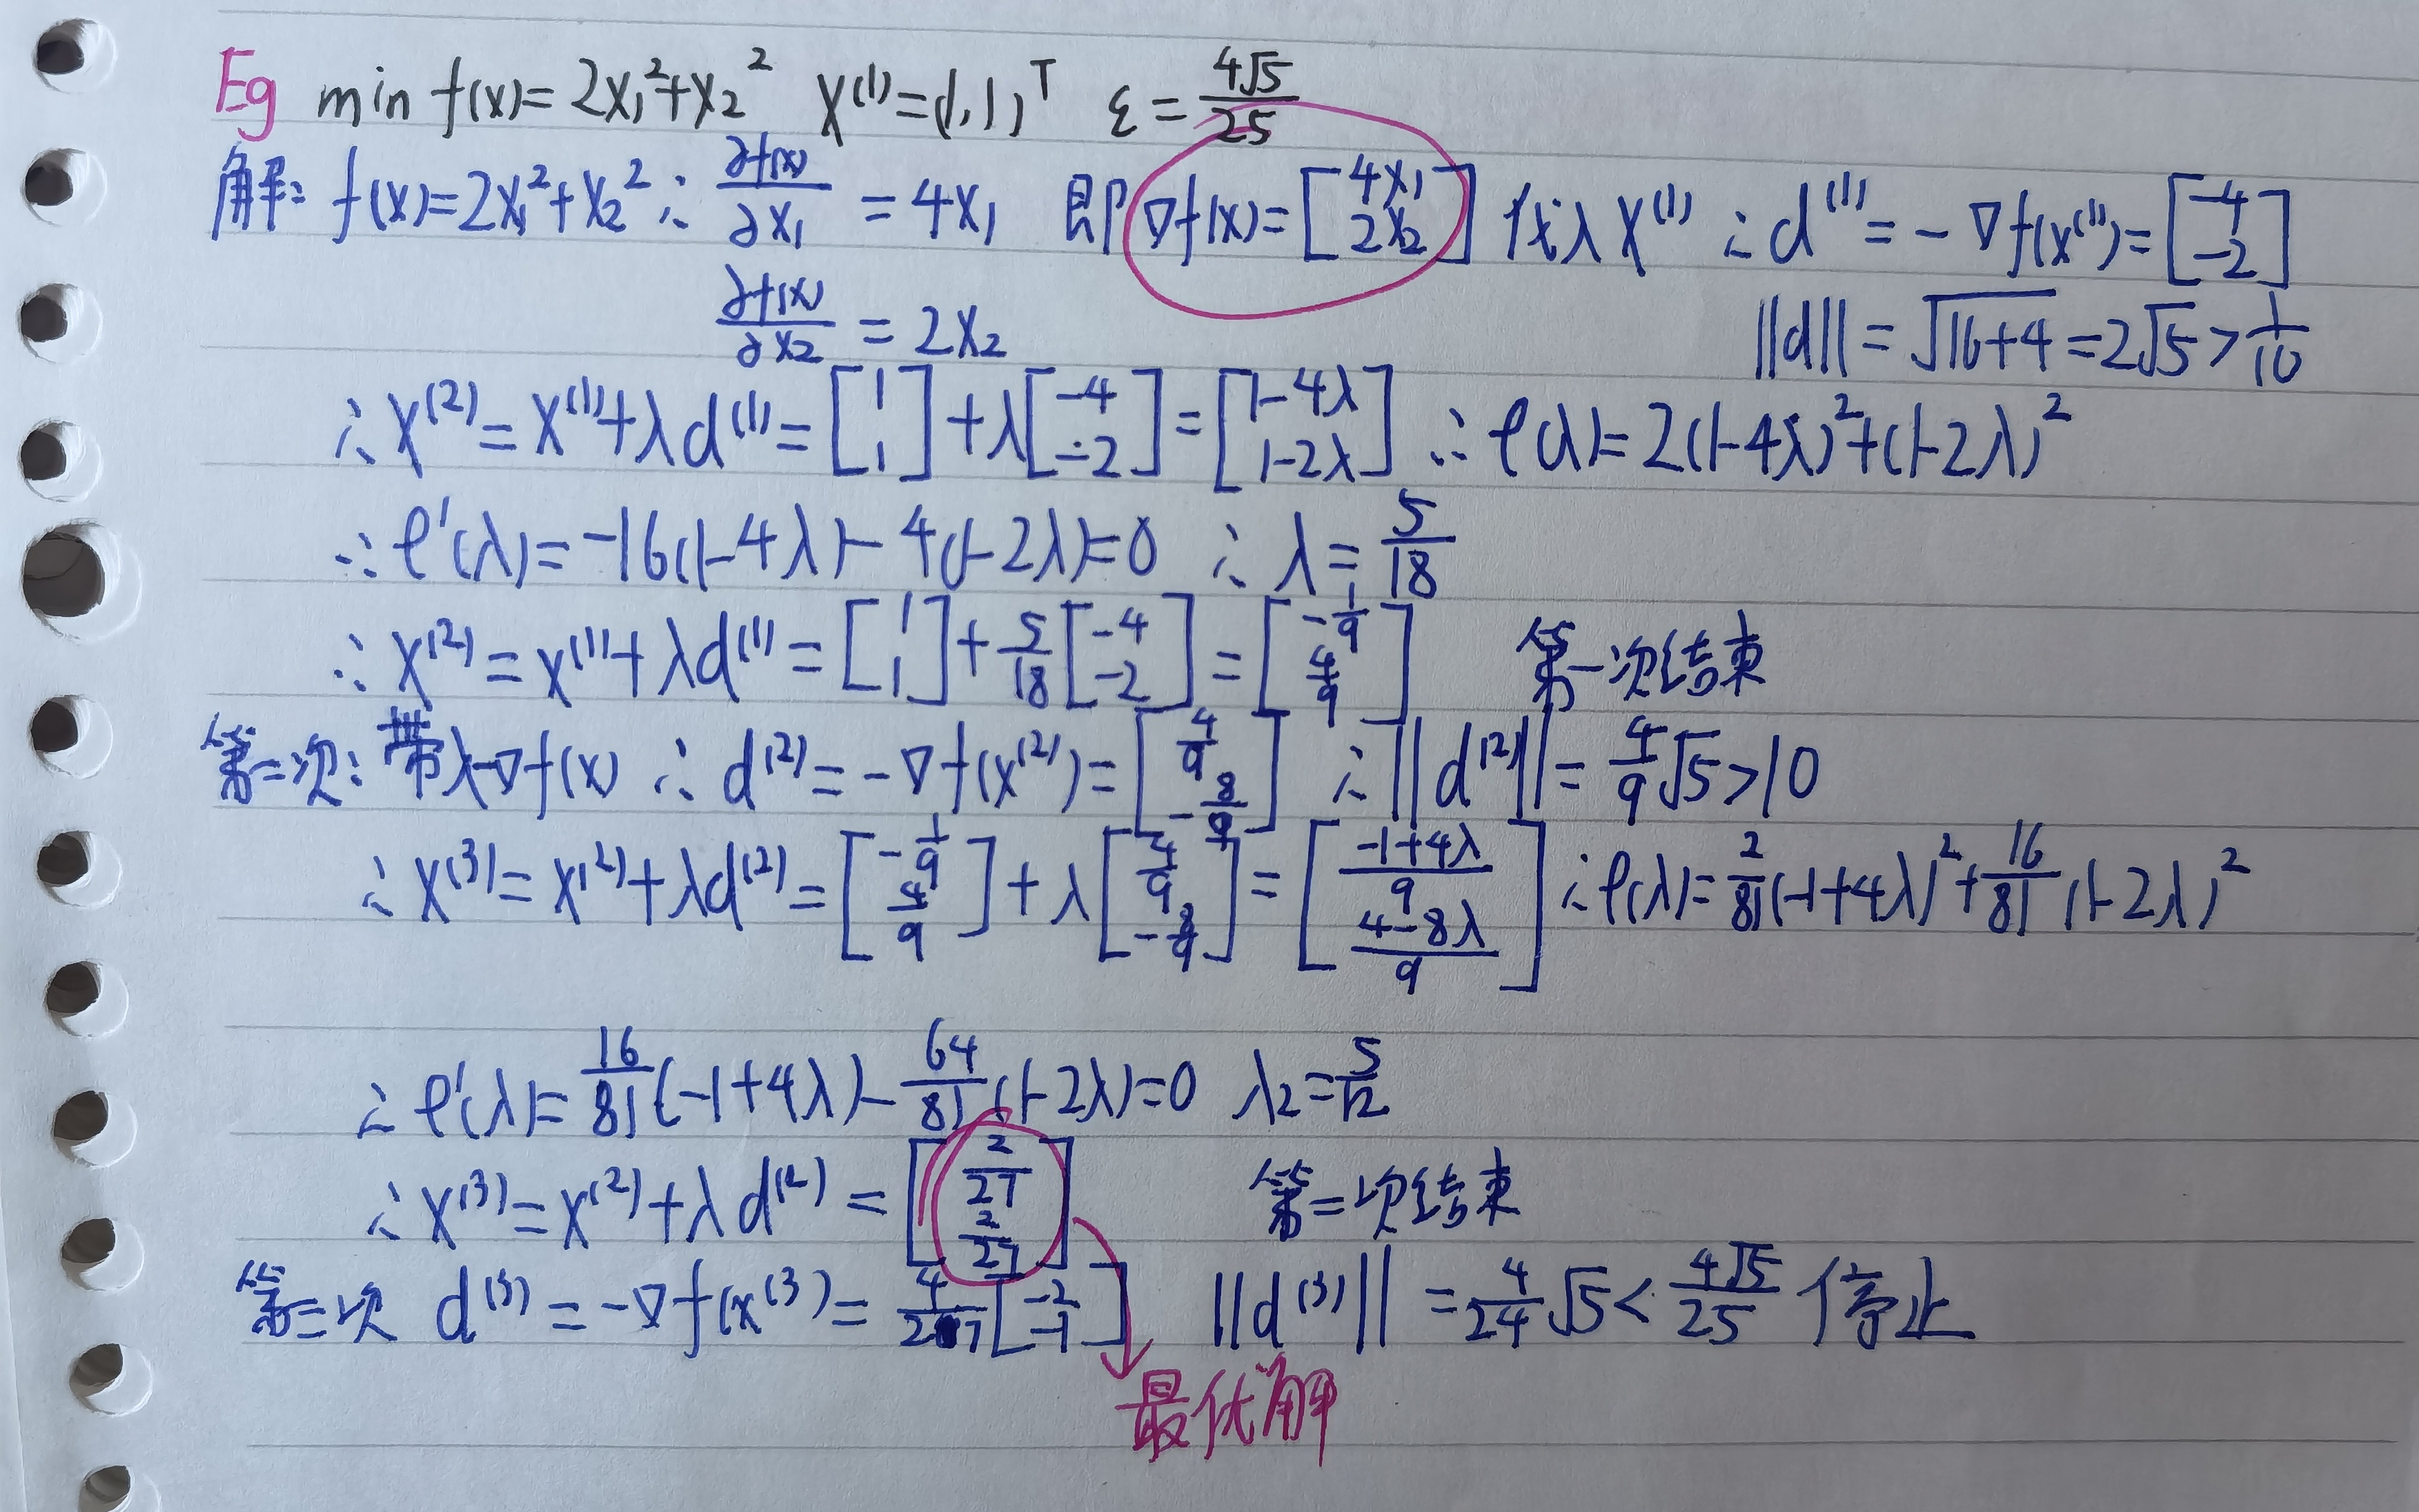 Eg min f(x)=2x₁²+x₂² x⁽¹⁾=(1,1)ᵀ ε=4√5/25
解: f(x)=2x₁²+x₂² ∴ ∂f(x)/∂x₁ = 4x₁ 即 ∇f(x)=[4x₁ 2x₂] 代入 x⁽¹⁾ ∴ d⁽¹⁾=-∇f(x⁽¹⁾)=[-4 -2]
∂f(x)/∂x₂ = 2x₂ ||d||=√(16+4)=2√5>1/10
∴ x⁽²⁾=x⁽¹⁾+λd⁽¹⁾=[1 1]+λ[-4 -2]=[1-4λ 1-2λ] ∴ φ(λ)=2(1-4λ)²+(1-2λ)²
∴ φ'(λ)=-16(1-4λ)-4(1-2λ)=0 ∴ λ=5/18
∴ x⁽²⁾=x⁽¹⁾+λd⁽¹⁾=[1 1]+5/18[-4 -2]=[-1/9 4/9] 第一次结束
第二次: 带入-∇f(x) ∴ d⁽²⁾=-∇f(x⁽²⁾)=[4/9 -8/9] ∴ ||d⁽²⁾||=4/9√5>10
∴ x⁽³⁾=x⁽²⁾+λd⁽²⁾=[-1/9 4/9]+λ[4/9 -8/9]=[(-1+4λ)/9 (4-8λ)/9] ∴ φ(λ)=2/81(-1+4λ)²+16/81(1-2λ)²
∴ φ'(λ)=16/81(-1+4λ)-64/81(1-2λ)=0 λ₂=5/12
∴ x⁽³⁾=x⁽²⁾+λd⁽²⁾=[2/27 2/27] 第二次结束
第三次 d⁽³⁾=-∇f(x⁽³⁾=4/27[-2 -1] ||d⁽³⁾||=4/24√5<4√5/25 停止
最优解